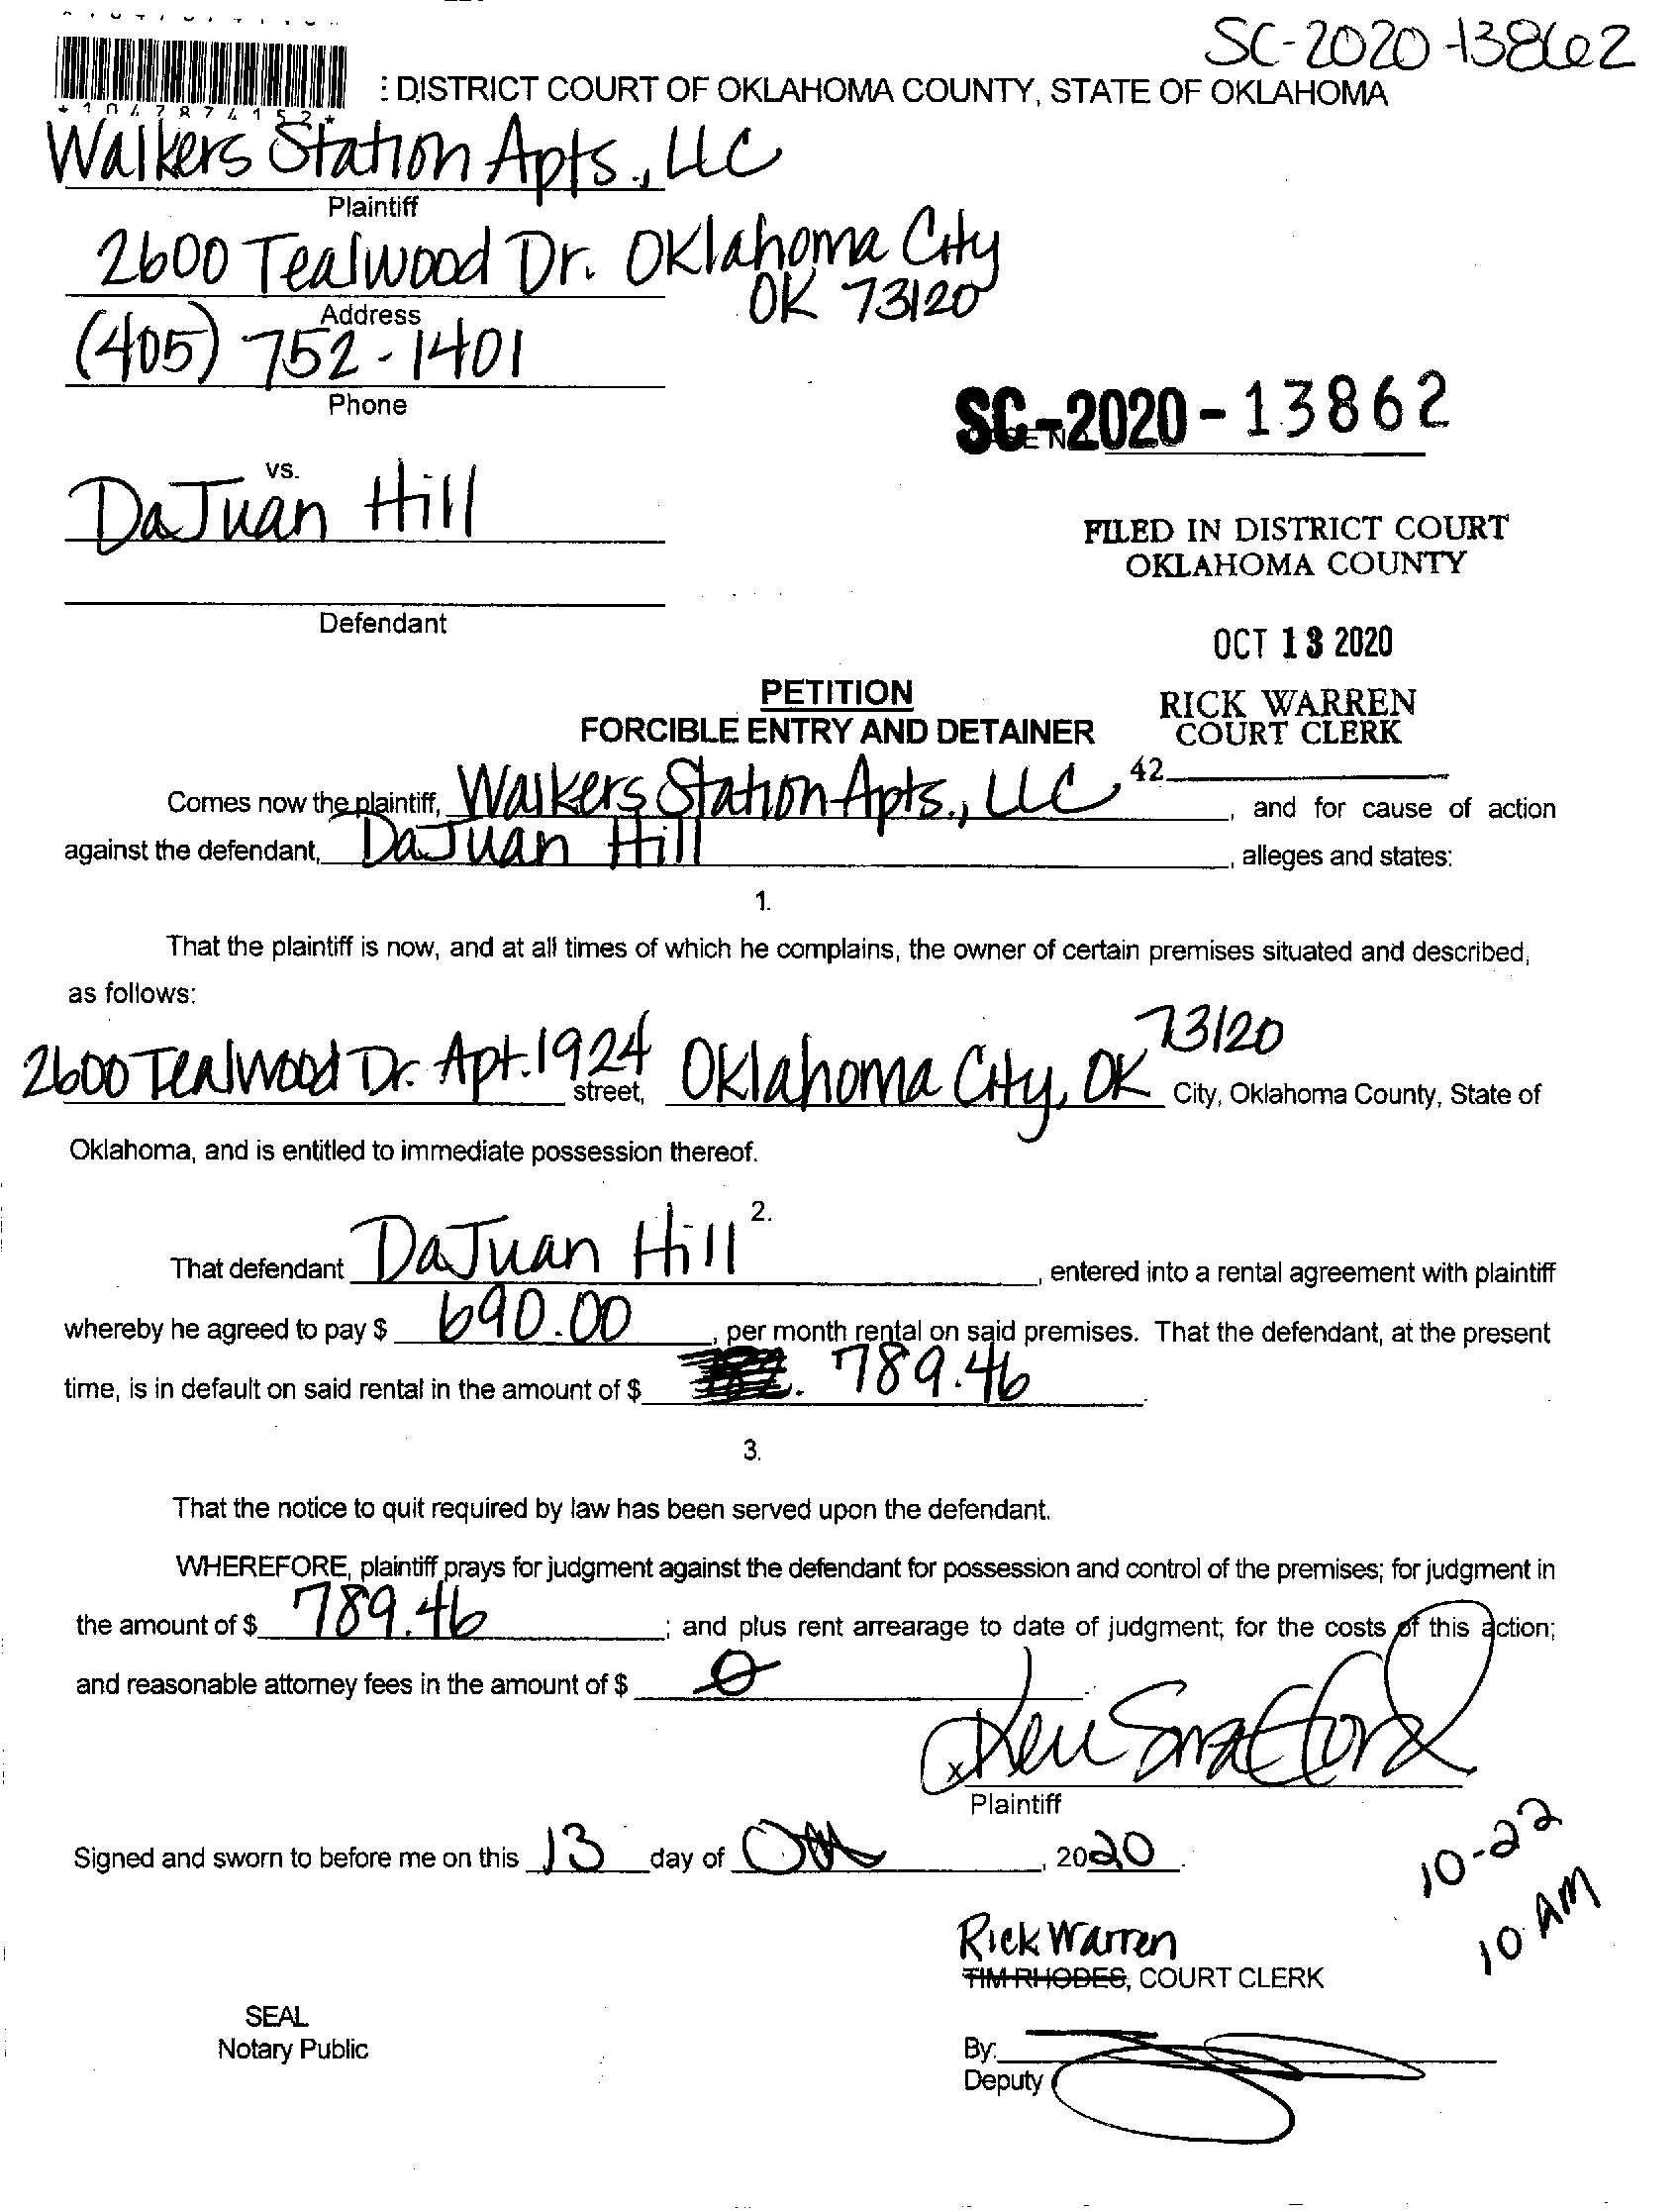 SC-2020-13862
: DISTRICT COURT OF OKLAHOMA COUNTY, STATE OF OKLAHOMA
*1047874152*
Walkers Station Apts., LLC
Plaintiff
2600 Tealwood Dr. Oklahoma City
OK 73120
Address
(405) 752-1401
Phone
SC-2020-13862
vs.
DaJuan Hill
FILED IN DISTRICT COURT
OKLAHOMA COUNTY
Defendant
OCT 13 2020
PETITION
RICK WARREN
FORCIBLE ENTRY AND DETAINER
COURT CLERK
42
Comes now the plaintiff, Walkers Station Apts., LLC, and for cause of action
against the defendant, DaJuan Hill, alleges and states:
1.
That the plaintiff is now, and at all times of which he complains, the owner of certain premises situated and described,
as follows:
2600 Tealwood Dr. Apt. 1924 street, Oklahoma City, OK 73120 City, Oklahoma County, State of
Oklahoma, and is entitled to immediate possession thereof.
2.
That defendant DaJuan Hill, entered into a rental agreement with plaintiff
whereby he agreed to pay $ 690.00, per month rental on said premises. That the defendant, at the present
time, is in default on said rental in the amount of $ 789.46.
3.
That the notice to quit required by law has been served upon the defendant.
WHEREFORE, plaintiff prays for judgment against the defendant for possession and control of the premises; for judgment in
the amount of $ 789.46; and plus rent arrearage to date of judgment; for the costs of this action;
and reasonable attorney fees in the amount of $ 0.
x
Plaintiff
Signed and sworn to before me on this 13 day of Oct, 2020.
10-22
10 AM
Rick Warren
TIM RHODES, COURT CLERK
SEAL
Notary Public
By:
Deputy